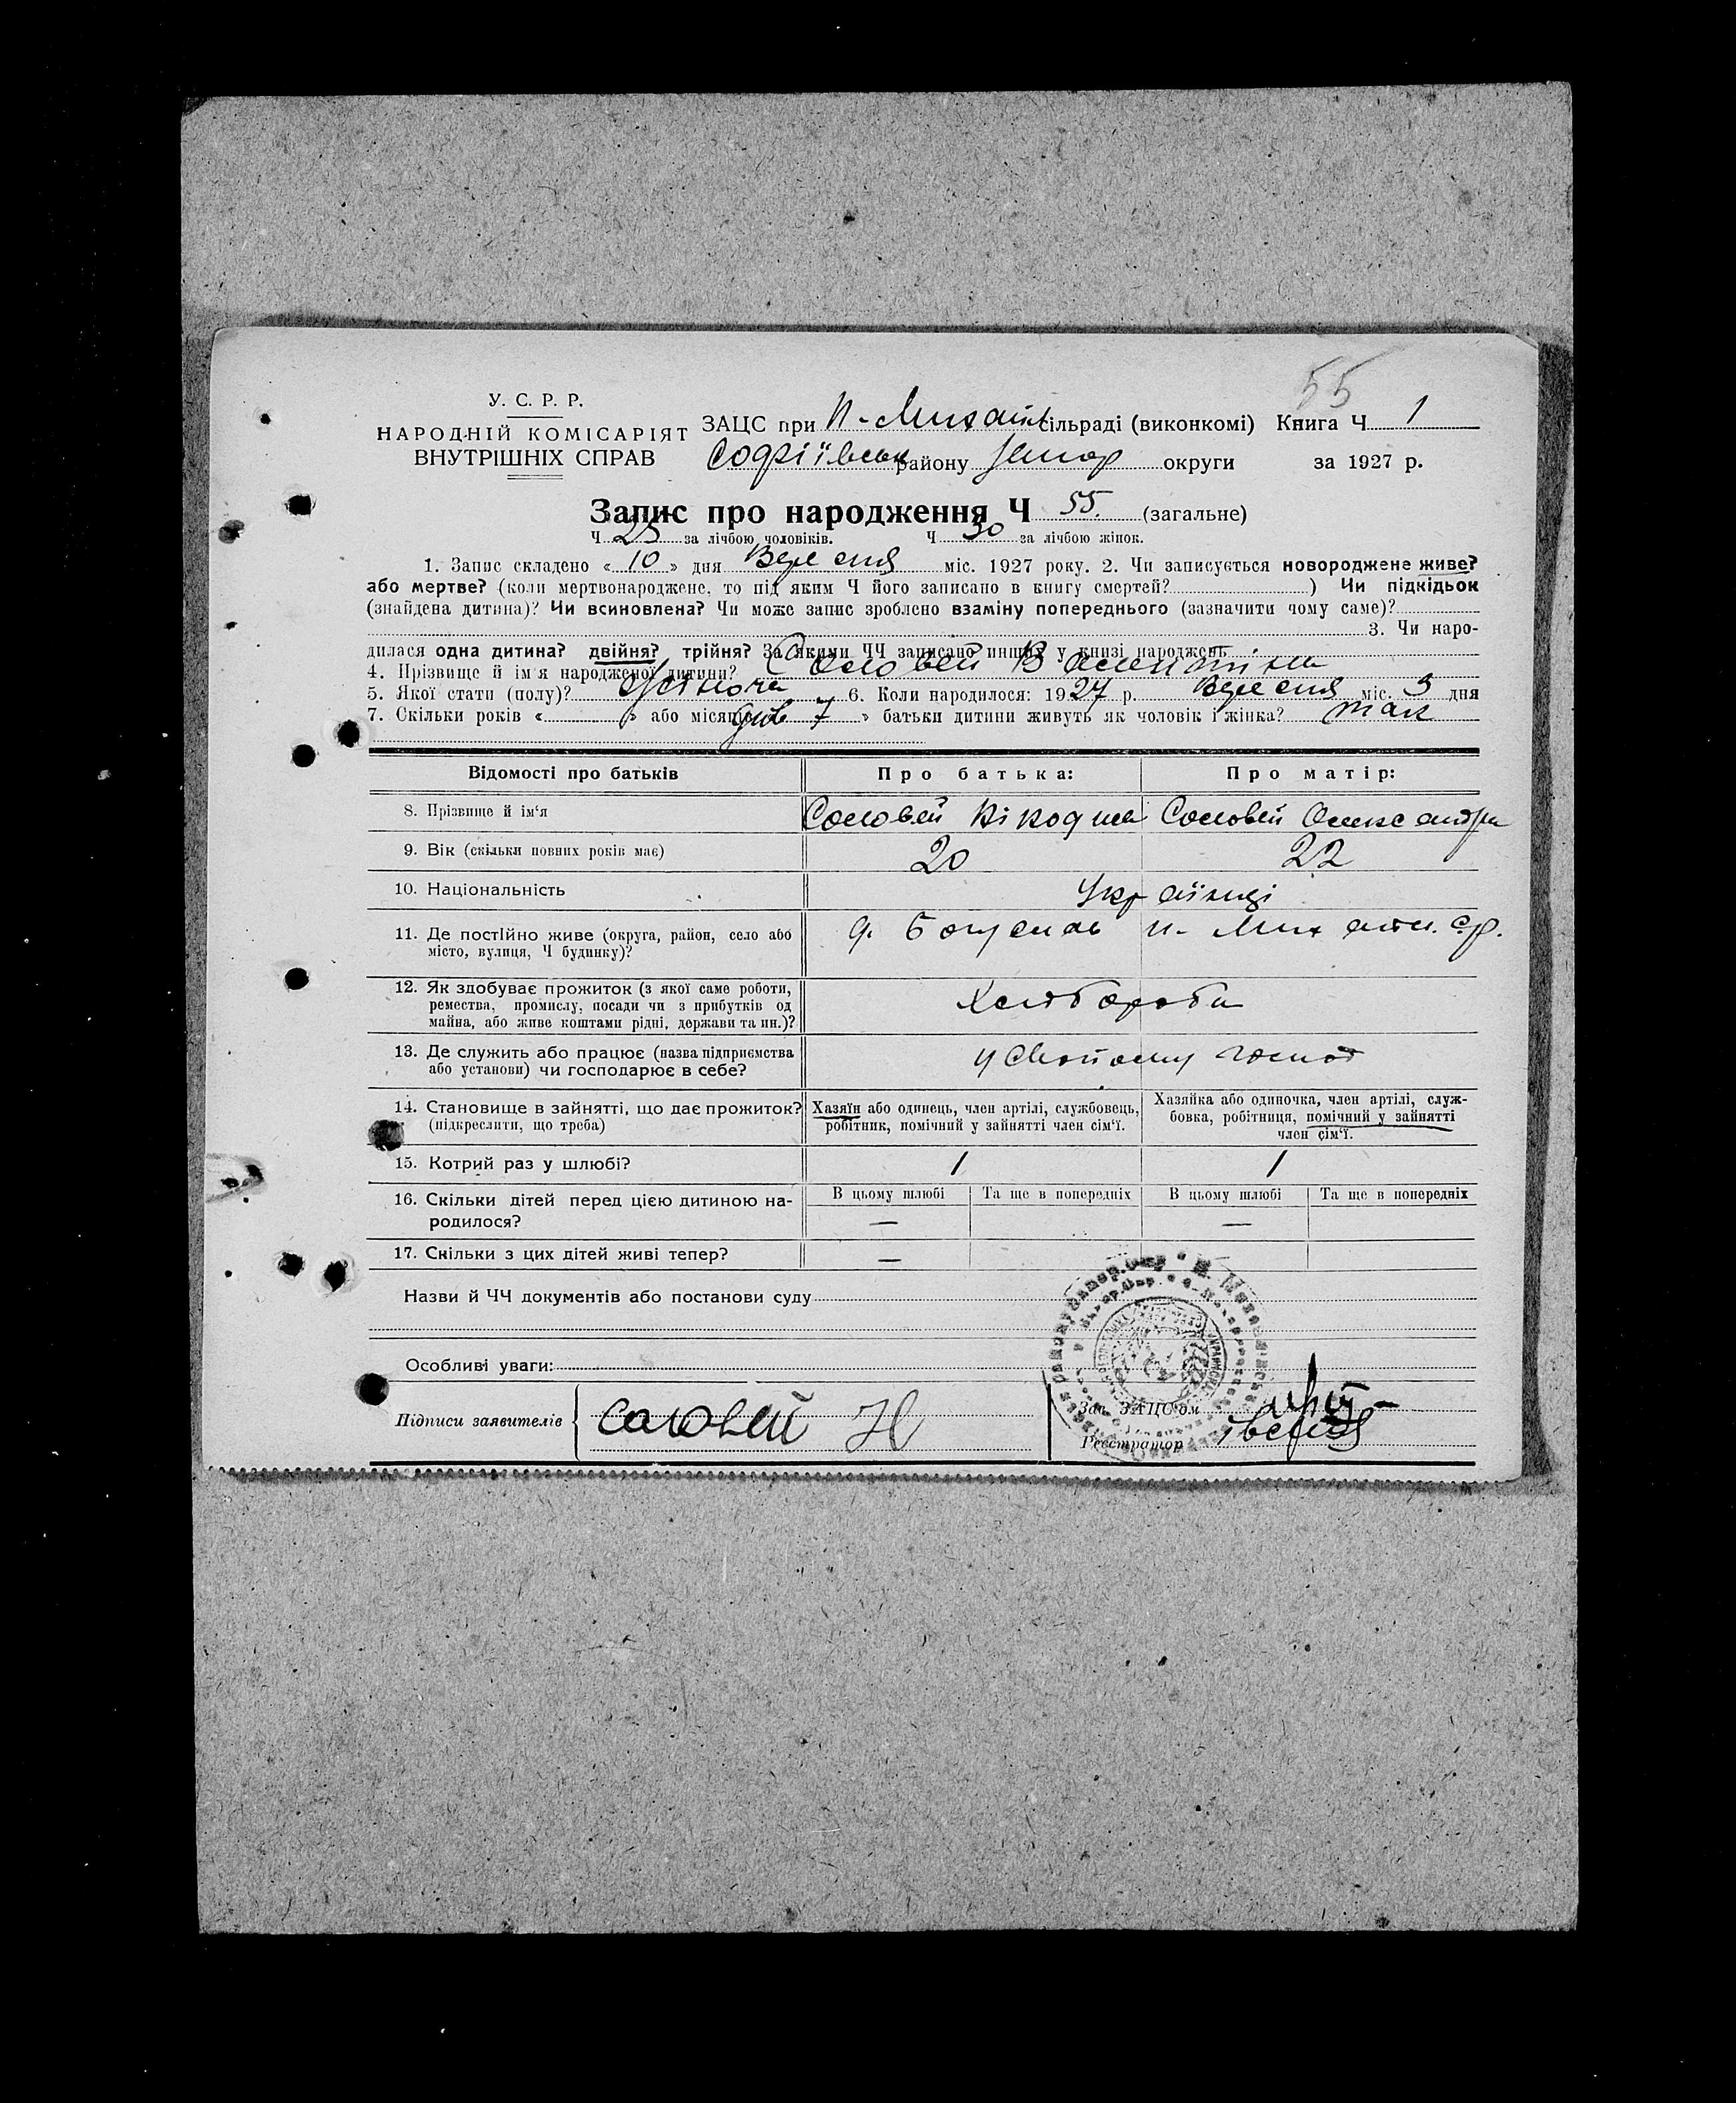 55
У. С. Р. Р.
НАРОДНІЙ КОМІСАРІЯТ
ВНУТРІШНІХ СПРАВ
ЗАЦС при Н-Михайл сільраді (виконкомі) Книга Ч 1
Софіївськ району Запор округи за 1927 р.
Запис про народження Ч 55. (загальне)
Ч 25 за лічбою чоловіків. Ч 30 за лічбою жінок.
1. Запис складено « 10 » дня Вересня міс. 1927 року. 2. Чи записується новороджене живе?
або мертве? (коли мертвонароджене, то під яким Ч його записано в книгу смертей? ) Чи підкідьок
(знайдена дитина)? Чи всиновлена? Чи може запис зроблено взаміну попереднього (зазначити чому саме)?
3. Чи наро-
дилася одна дитина? двійня? трійня? За якими ЧЧ записано инших у книзі народжень
4. Прізвище й ім'я народженої дитини? Соловей Валентіна
5. Якої стати (полу)? Жіноча 6. Коли народилося: 1927 р. Вересня міс. 3 дня
7. Скільки років « » або місяців 7 » батьки дитини живуть як чоловік і жінка? так
Відомості про батьків Про батька: Про матір:
8. Прізвище й ім'я Соловей Нікодим Соловей Олександра
9. Вік (скільки повних років має) 20 22
10. Національність Українці
11. Де постійно живе (округа, район, село або
місто, вулиця, Ч будинку)? Н- Михайл. с.р.
12. Як здобуває прожиток (з якої саме роботи,
ремества, промислу, посади чи з прибутків од
майна, або живе коштами рідні, держави та ин.)? Хлібороби
13. Де служить або працює (назва підприємства
або установи) чи господарює в себе? у своїому господ
14. Становище в зайнятті, що дає прожиток?
(підкреслити, що треба)
Хазяїн або одинець, член артілі, службовець,
робітник, помічний у зайнятті член сім'ї.
Хазяйка або одиночка, член артілі, служ-
бовка, робітниця, помічний у зайнятті
член сім'ї.
15. Котрий раз у шлюбі? 1 1
16. Скільки дітей перед цією дитиною на-
родилося?
В цьому шлюбі Та ще в попередніх В цьому шлюбі Та ще в попередніх
— —
17. Скільки з цих дітей живі тепер? —
Назви й ЧЧ документів або постанови суду
Особливі уваги:
Підписи заявителів Соловей Н
Зав. ЗАЦС'ом
Реєстратор